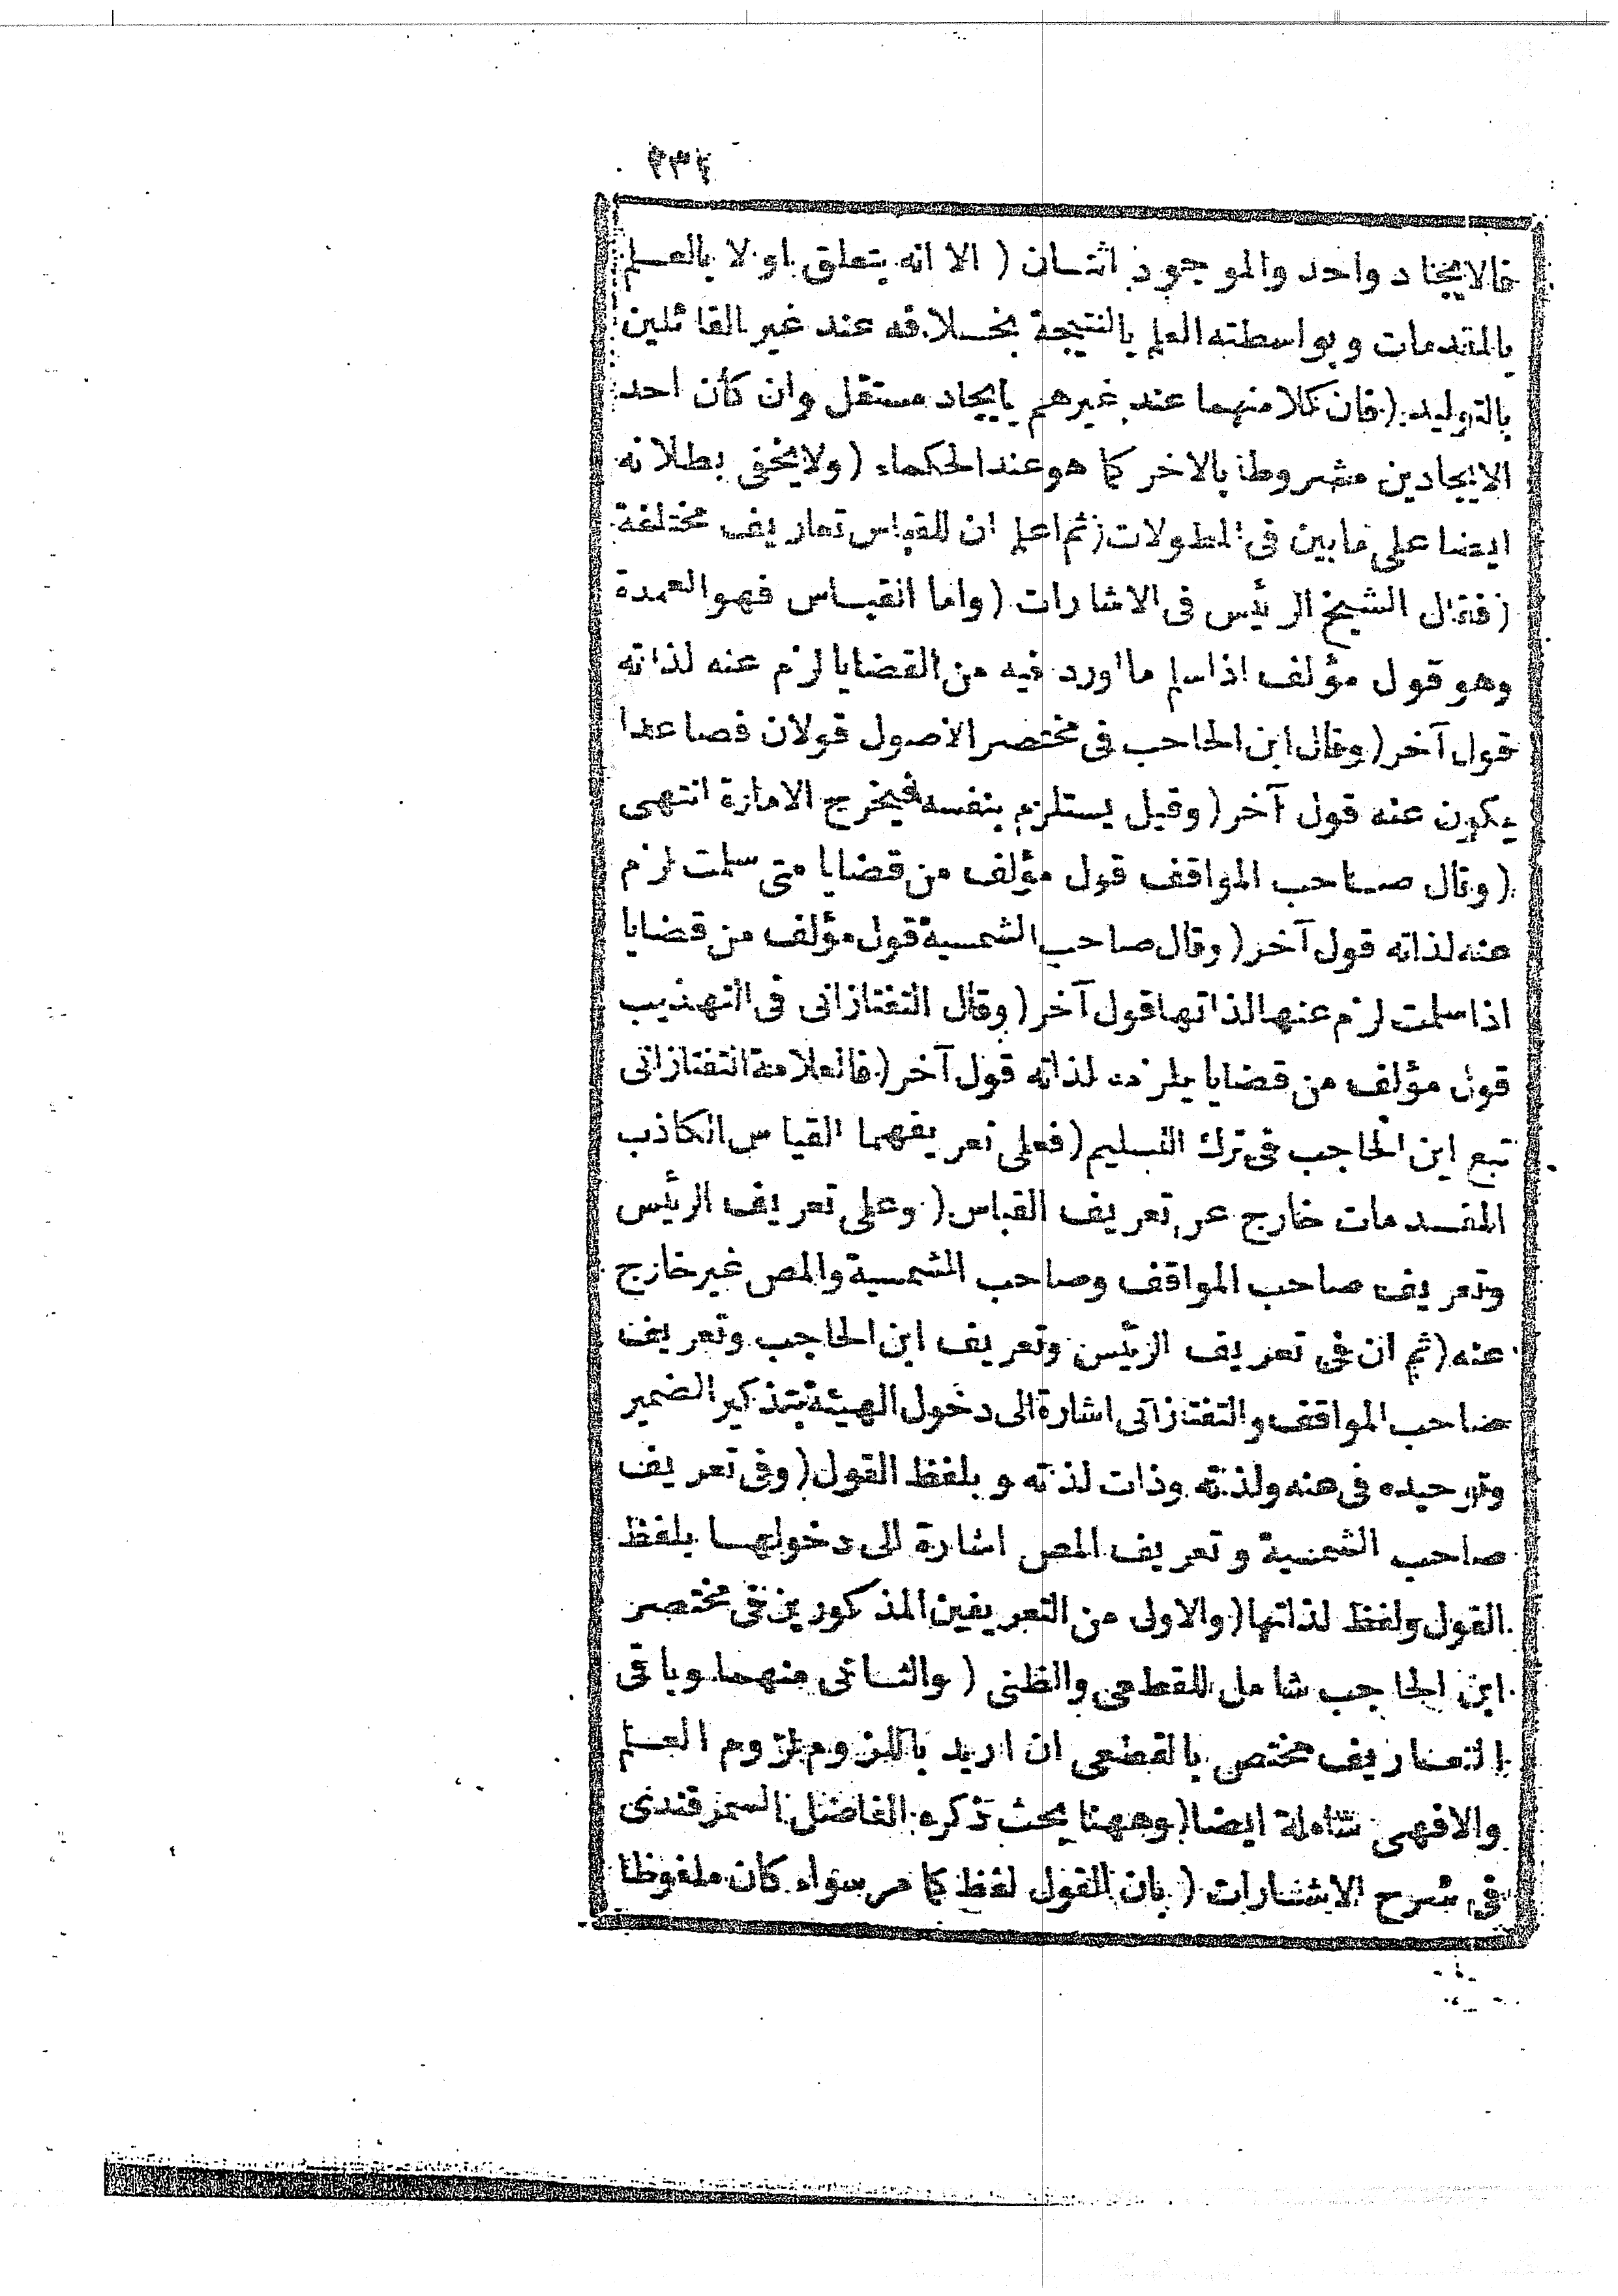 ٢٣٤
فالايجاد واحد والموجود اثنان ( الا انه يتعلق اولا بالعلم
بالمقدمات وبواسطته العلم بالنتيجة بخلافه عند غير القائلين
بالتوليد ( فان كلا منهما عند غيرهم بايجاد مستقل وان كان احد
الايجادين مشروطا بالاخر كما هو عند الحكماء ( ولا يخفى بطلانه
ايضا على ما بين فى المطولات ( ثم اعلم ان للقياس تعاريف مختلفة
( فقال الشيخ الرئيس فى الاشارات ( واما القياس فهو العمدة
وهو قول مؤلف اذا سلم ما اورد فيه من القضايا لزم عنه لذاته
قول آخر ( وقال ابن الحاجب فى مختصر الاصول قولان فصاعدا
يكون عنه قول آخر ( وقيل يستلزم بنفسه فيخرج الامارة انتهى
( وقال صاحب المواقف قول مؤلف من قضايا متى سلمت لزم
عنه لذاته قول آخر ( وقال صاحب الشمسية قول مؤلف من قضايا
اذا سلمت لزم عنها لذاتها قول آخر ( وقال التفتازانى فى التهذيب
قول مؤلف من قضايا يلزمه لذاته قول آخر ( فالعلامة التفتازانى
تبع ابن الحاجب فى ترك التسليم ( فعلى تعريفهما القياس الكاذب
المقدمات خارج عن تعريف القياس ( وعلى تعريف الرئيس
وتعريف صاحب المواقف وصاحب الشمسية والمص غير خارج
عنه ( ثم ان فى تعريف الرئيس وتعريف ابن الحاجب وتعريف
صاحب المواقف والتفتازانى اشارة الى دخول الهيئة بتذكير الضمير
وتوحيده فى عنه ولذته وذات لذته وبلفظ القول ( وفى تعريف
صاحب الشمسية وتعريف المص اشارة الى دخولها بلفظ
القول ولفظ لذاتها ( والاولى من التعريفين المذكورين فى مختصر
ابن الحاجب شامل للقطعى والظنى ( والثانى منهما وباقى
التعاريف مختص بالقطعى ان اريد باللزوم لزوم العلم
والا فهى شاملة ايضا ( وههنا بحث ذكره الفاضل السمرقندى
فى شرح الاشارات ( بان القول لفظ كما مر سواء كان ملفوظا